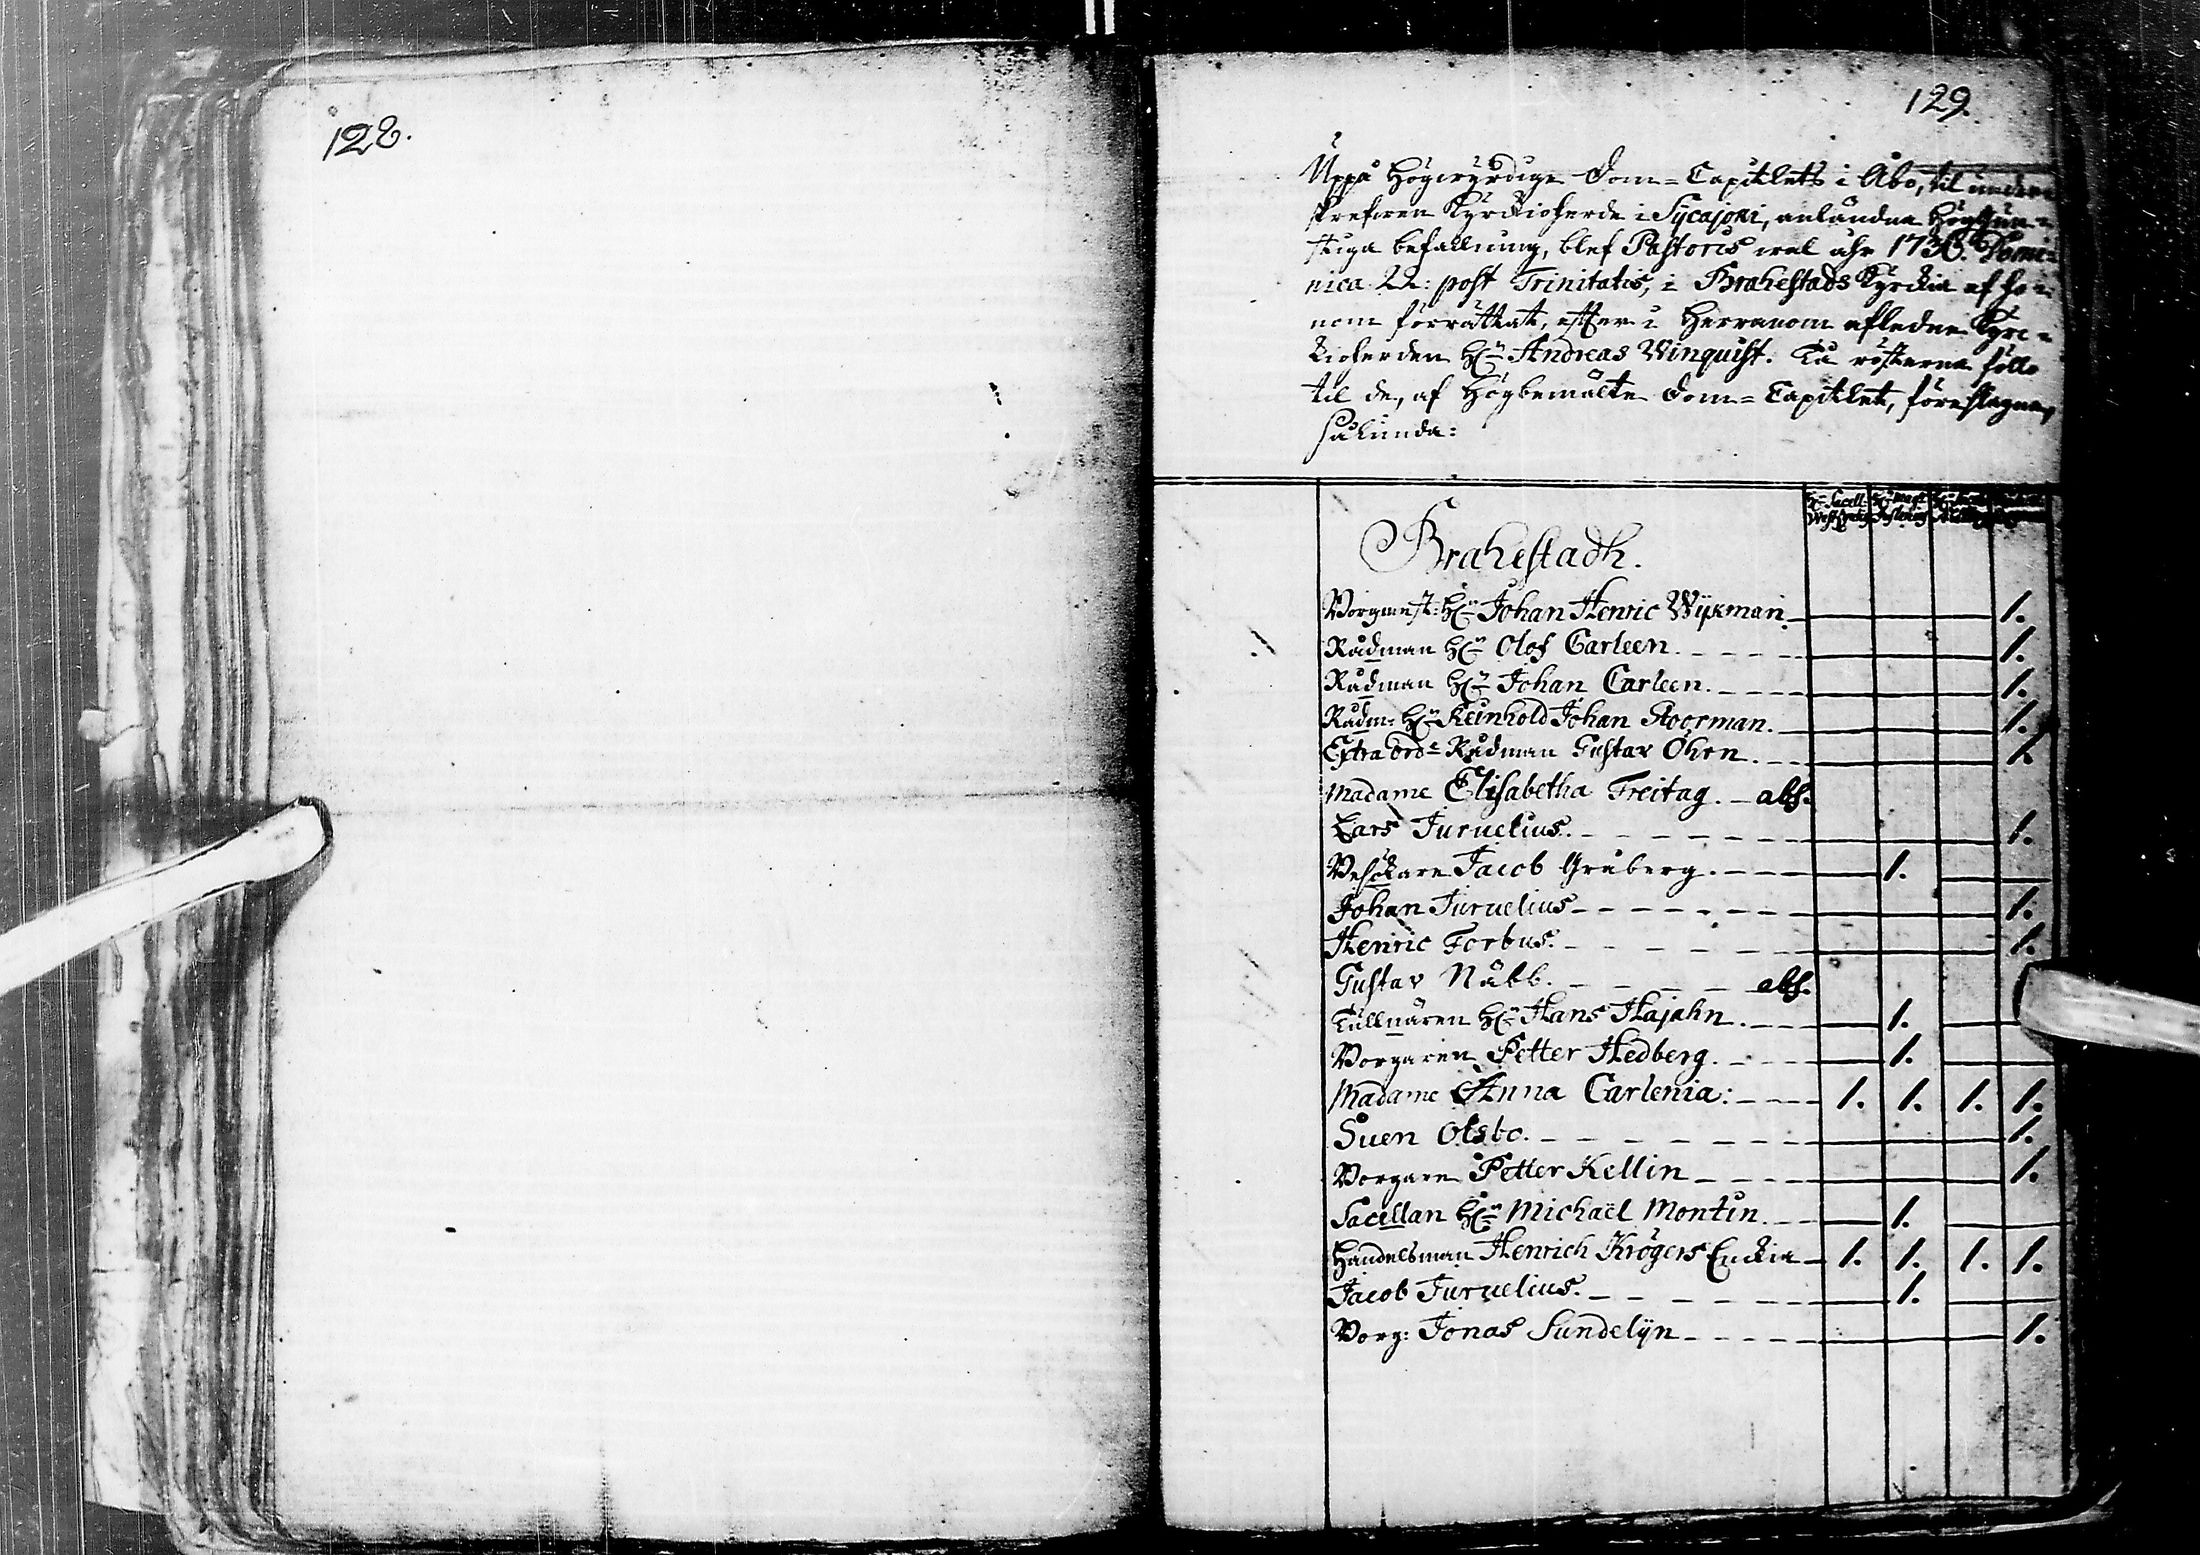 128.
129.
Uppå Högwyrdige Dom=Capitlets i Åbo, til under
skrefwen Kyrckioherde i Sijcajoki, anlände Höggun=
stiga befallning, blef Pastoris wal åhr 1738. Domi=
nica 22: post Trinitatis, i Brahestads Kyrckia af ho=
nom förrättat, efter i Herranom afledne Kyrc=
kioherden Hr Andreas Winquist. Tå rösterne föllo
til de, af Högbemälte Dom=Capitlet, föreslagne,
sålunda:
Hr Sacell. Hr Mag.
Brahestadh.
Borgmest: Hr Johan Henric Wijkman 1.
Rådman Hr Olof Carleen. 1.
Rådman Hr Johan Carleen. 1.
Rådm: Hr Reinhold Johan Stoorman. 1.
Extra ord: Rådman Gustav Öhrn. 1.
Madame Elisabetha Freitag. abs.
Lars Turuelius. 1.
Besökare Jacob Gruberg. 1.
Johan Turuelius 1.
Henric Forbus. 1.
Gustav Näbb. abs.
Tullnären Hr Hans Hajahn. 1.
Borgaren Petter Hedberg. 1.
Madame Anna Carlenia: 1. 1. 1. 1.
Suen Olsbo. 1.
Borgaren Petter Kellin 1.
Sacellan Hr Michaël Montin. 1.
Handelsman Henrich Krögers Enckia 1. 1. 1. 1.
Jacob Turuelius. 1.
Borg: Jonas Sundelijn 1.